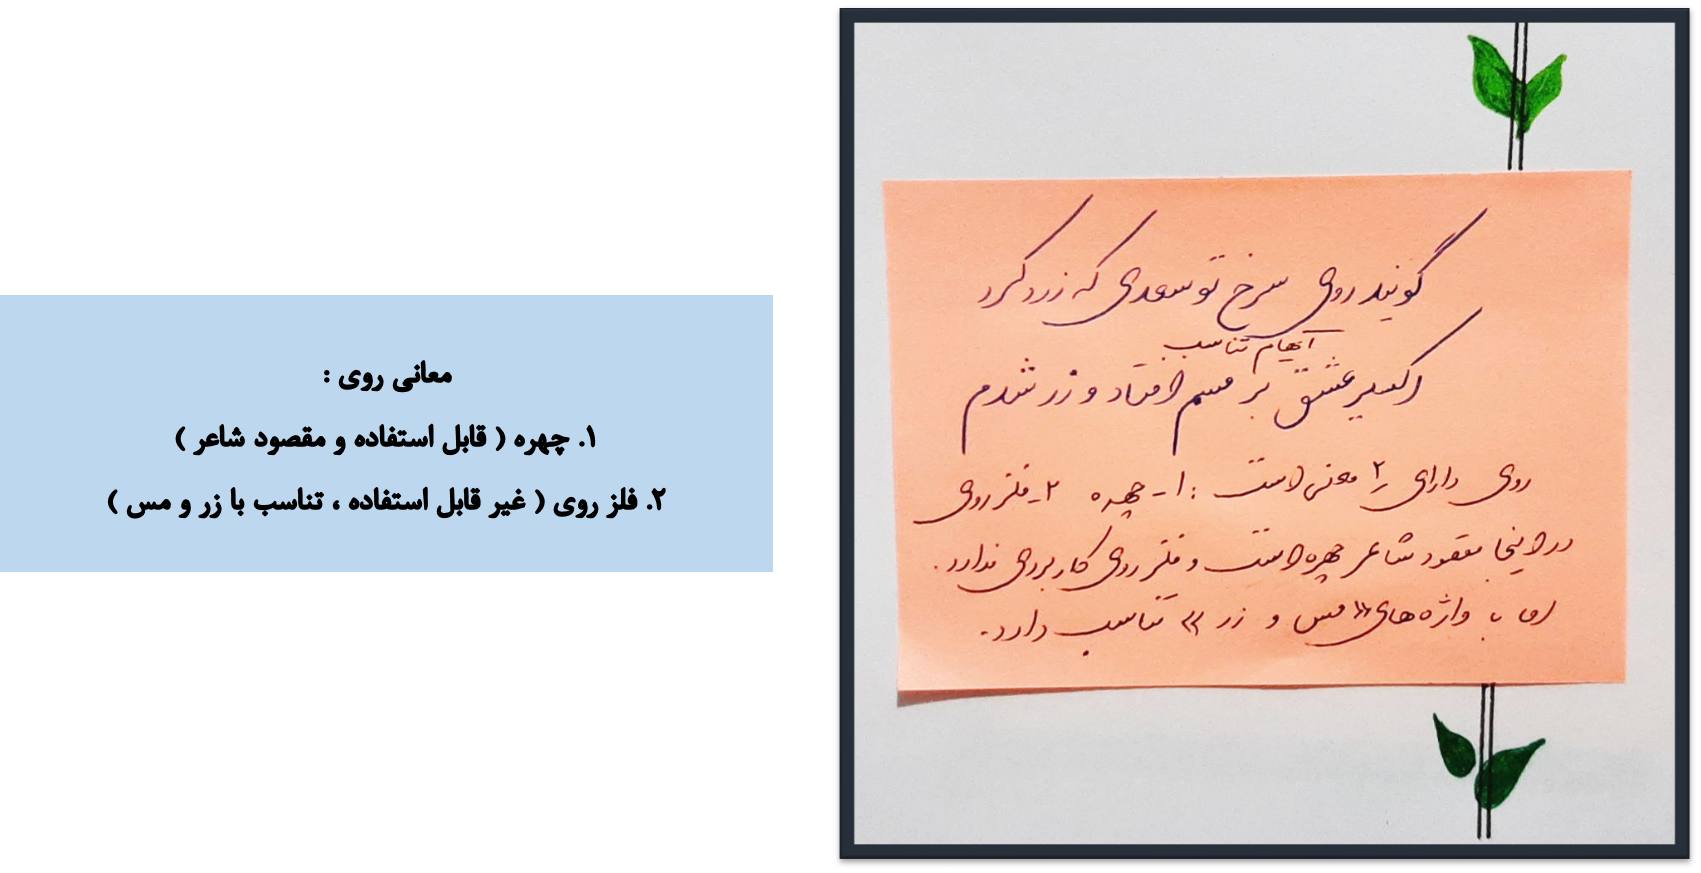 معانی روی :
۱. چهره ( قابل استفاده و مقصود شاعر )
۲. فلز روی ( غیر قابل استفاده ، تناسب با زر و مس )
گویند روی سرخ تو سعدی که زرد کرد
ایهام تناسب
اکسیر عشق بر مسم افتاد و زر شدم
روی دارای ۲ معنی است : ۱- چهره ۲- فلز روی
در اینجا مقصود شاعر چهره است و فلز روی کاربردی ندارد.
اما با واژه های «مس و زر» تناسب دارد.